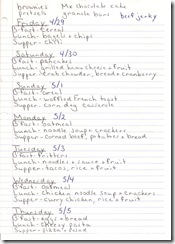 brownies Mx chocolate cake
pretzels granola bars beef jerky
Friday 4/29
B'fast- Cereal
Lunch- bagels + chips
Supper- chili
Saturday 4/30
B'fast- pancakes
Lunch- grilled ham + cheese + fruit
Supper- chowder, bread + cranberry
Sunday 5/1
B'fast- cereal
Lunch- waffled French toast
Supper- corn dog casserole
Monday 5/2
B'fast- oatmeal
Lunch- noodle soup + crackers
Supper- corned beef, potatoes + bread
Tuesday 5/3
B'fast- fritters
Lunch- noodles + sauce + fruit
Supper- tacos, rice + fruit
Wednesday 5/4
B'fast- oatmeal
Lunch- chicken noodle soup + crackers
Supper- curry chicken, rice + fruit
Thursday 5/5
B'fast- eggs + bread
Lunch- cheesy pasta
Supper-